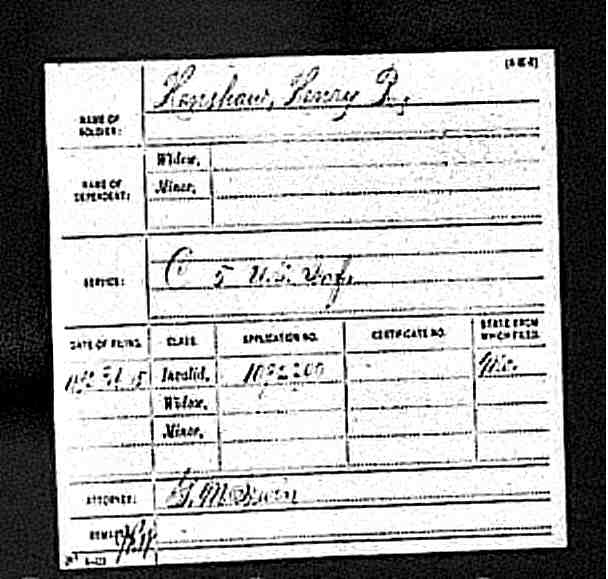 NAME OF SOLDIER: Henshaw, Henry P.,
NAME OF DEPENDENT: Widow,
Minor,
SERVICE: C 5 U.S. Inf.
DATE OF FILING. CLASS. APPLICATION NO. CERTIFICATE NO. STATE FROM WHICH FILED.
Invalid, 1092200
Widow,
Minor,
ATTORNEY:
REMARKS: